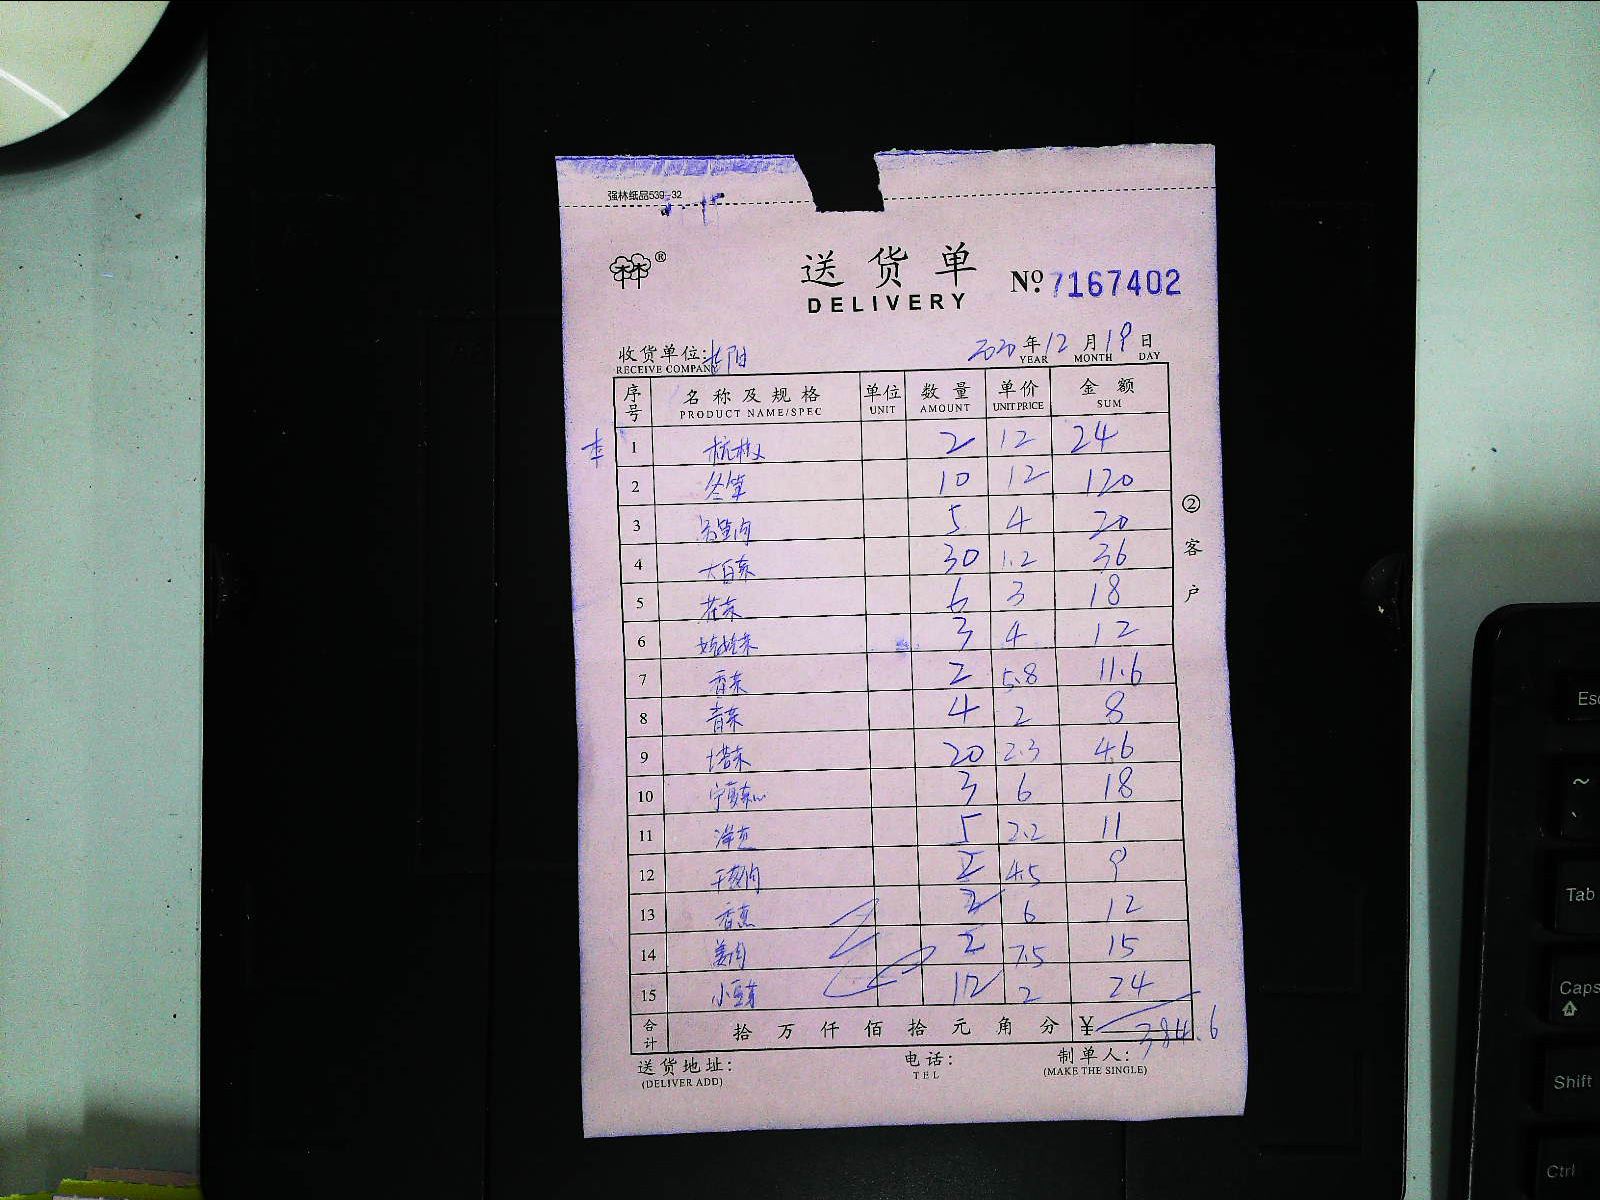 强林纸品539-32
林®
送货单
DELIVERY
No.7167402
收货单位:
RECEIVE COMPANY
2020年12月19日
YEAR MONTH DAY
序号 名称及规格 单位 数量 单价 金额
PRODUCT NAME/SPEC UNIT AMOUNT UNIT PRICE SUM
1 杭椒 2 12 24
2 冬笋 10 12 120
3 5 4 20
4 大白菜 30 1.2 36
5 花菜 6 3 18
6 娃娃菜 3 4 12
7 香菜 2 5.8 11.6
8 青菜 4 2 8
9 塔菜 20 2.3 46
10 宁夏菜心 3 6 18
11 洋芋 5 2.2 11
12 2 4.5 9
13 2 6 12
14 姜肉 2 7.5 15
15 小豆芽 12 2 24
合计 拾万仟佰拾元角分 ¥ 384.6
送货地址: 电话: 制单人:
(DELIVER ADD) TEL (MAKE THE SINGLE)
②客户
Esc
~
Tab
Caps
Shift
Ctrl